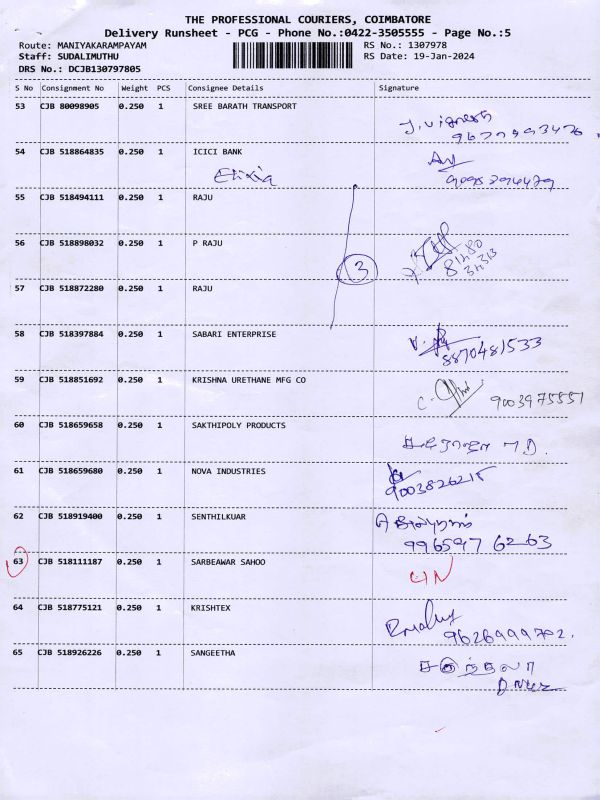 THE PROFESSIONAL COURIERS, COIMBATORE
Delivery Runsheet - PCG - Phone No.:0422-3505555 - Page No.:5
Route: MANIYAKARAMPAYAM RS No.: 1307978
Staff: SUDALIMUTHU RS Date: 19-Jan-2024
DRS No.: DCJB130797805
S No Consignment No Weight PCS Consignee Details Signature
53 CJB 80098905 0.250 1 SREE BARATH TRANSPORT
J. Vignesh
54 CJB 518864835 0.250 1 ICICI BANK
55 CJB 518494111 0.250 1 RAJU
56 CJB 518898032 0.250 1 P RAJU
3
57 CJB 518872280 0.250 1 RAJU
58 CJB 518397884 0.250 1 SABARI ENTERPRISE
8870481533
59 CJB 518851692 0.250 1 KRISHNA URETHANE MFG CO
9003975551
60 CJB 518659658 0.250 1 SAKTHIPOLY PRODUCTS
61 CJB 518659680 0.250 1 NOVA INDUSTRIES
9003826215
62 CJB 518919400 0.250 1 SENTHILKUAR
9965976263
63 CJB 518111187 0.250 1 SARBEAWAR SAHOO
64 CJB 518775121 0.250 1 KRISHTEX
9626999702.
65 CJB 518926226 0.250 1 SANGEETHA